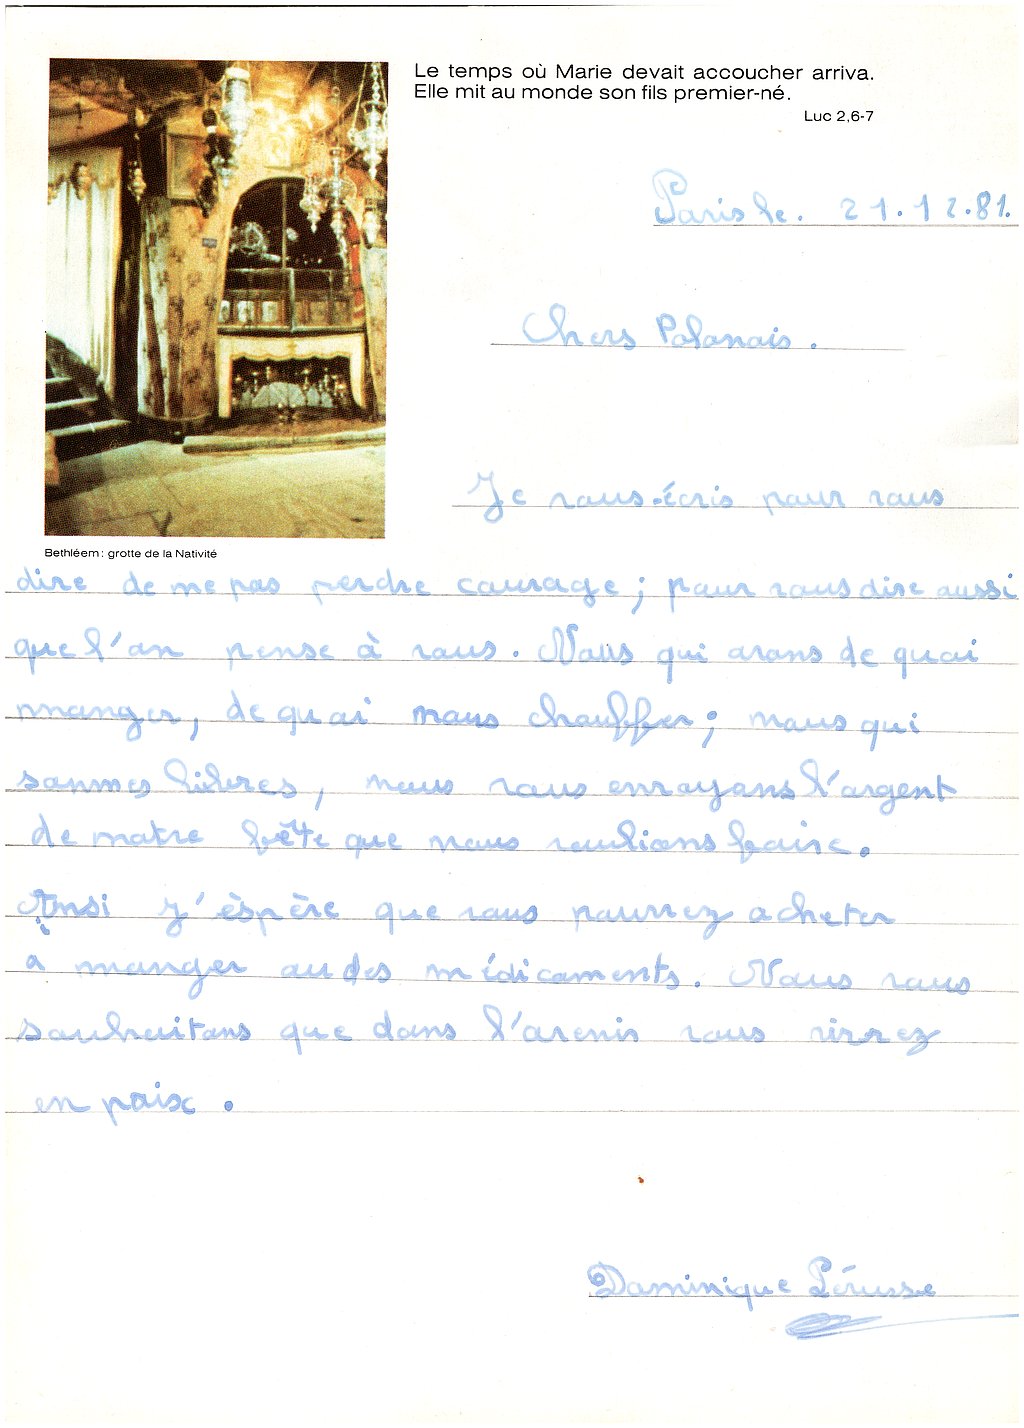 Le temps où Marie devait accoucher arriva.
Elle mit au monde son fils premier-né.
Luc 2,6-7
Paris le. 21.12.81.
Chers Polonais.
Je vous écris pour vous
Bethléem : grotte de la Nativité
dire de ne pas perdre courage ; pour vous dire aussi
que l'on pense à vous. Nous qui avons de quoi
manger, de quoi nous chauffer ; nous qui
sommes libres, nous vous envoyons l'argent
de notre fête que nous voulions faire.
Ainsi j'éspère que vous pourrez acheter
a manger ou des médicaments. Nous vous
souhaitons que dans l'avenir vous vivrez
en paix.
Dominique Pérusse